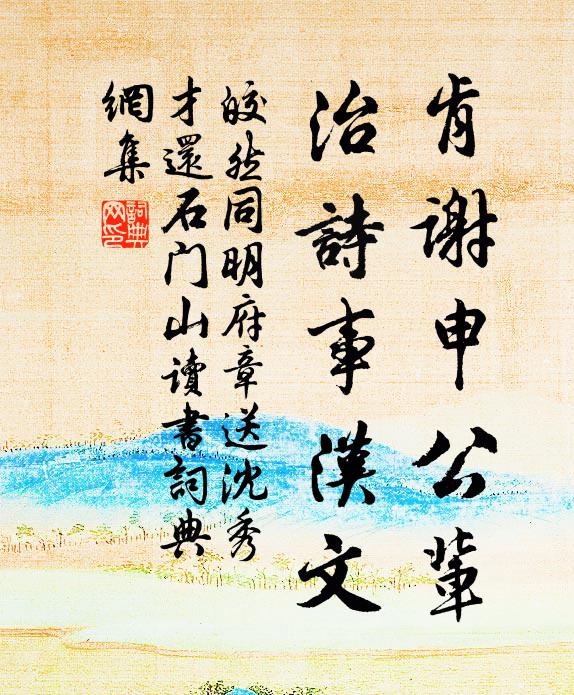 肯谢申公輩
治詩事漢文
皎然同明府章送沈秀
才還石门山讀書詞典
網集
詞典
网印